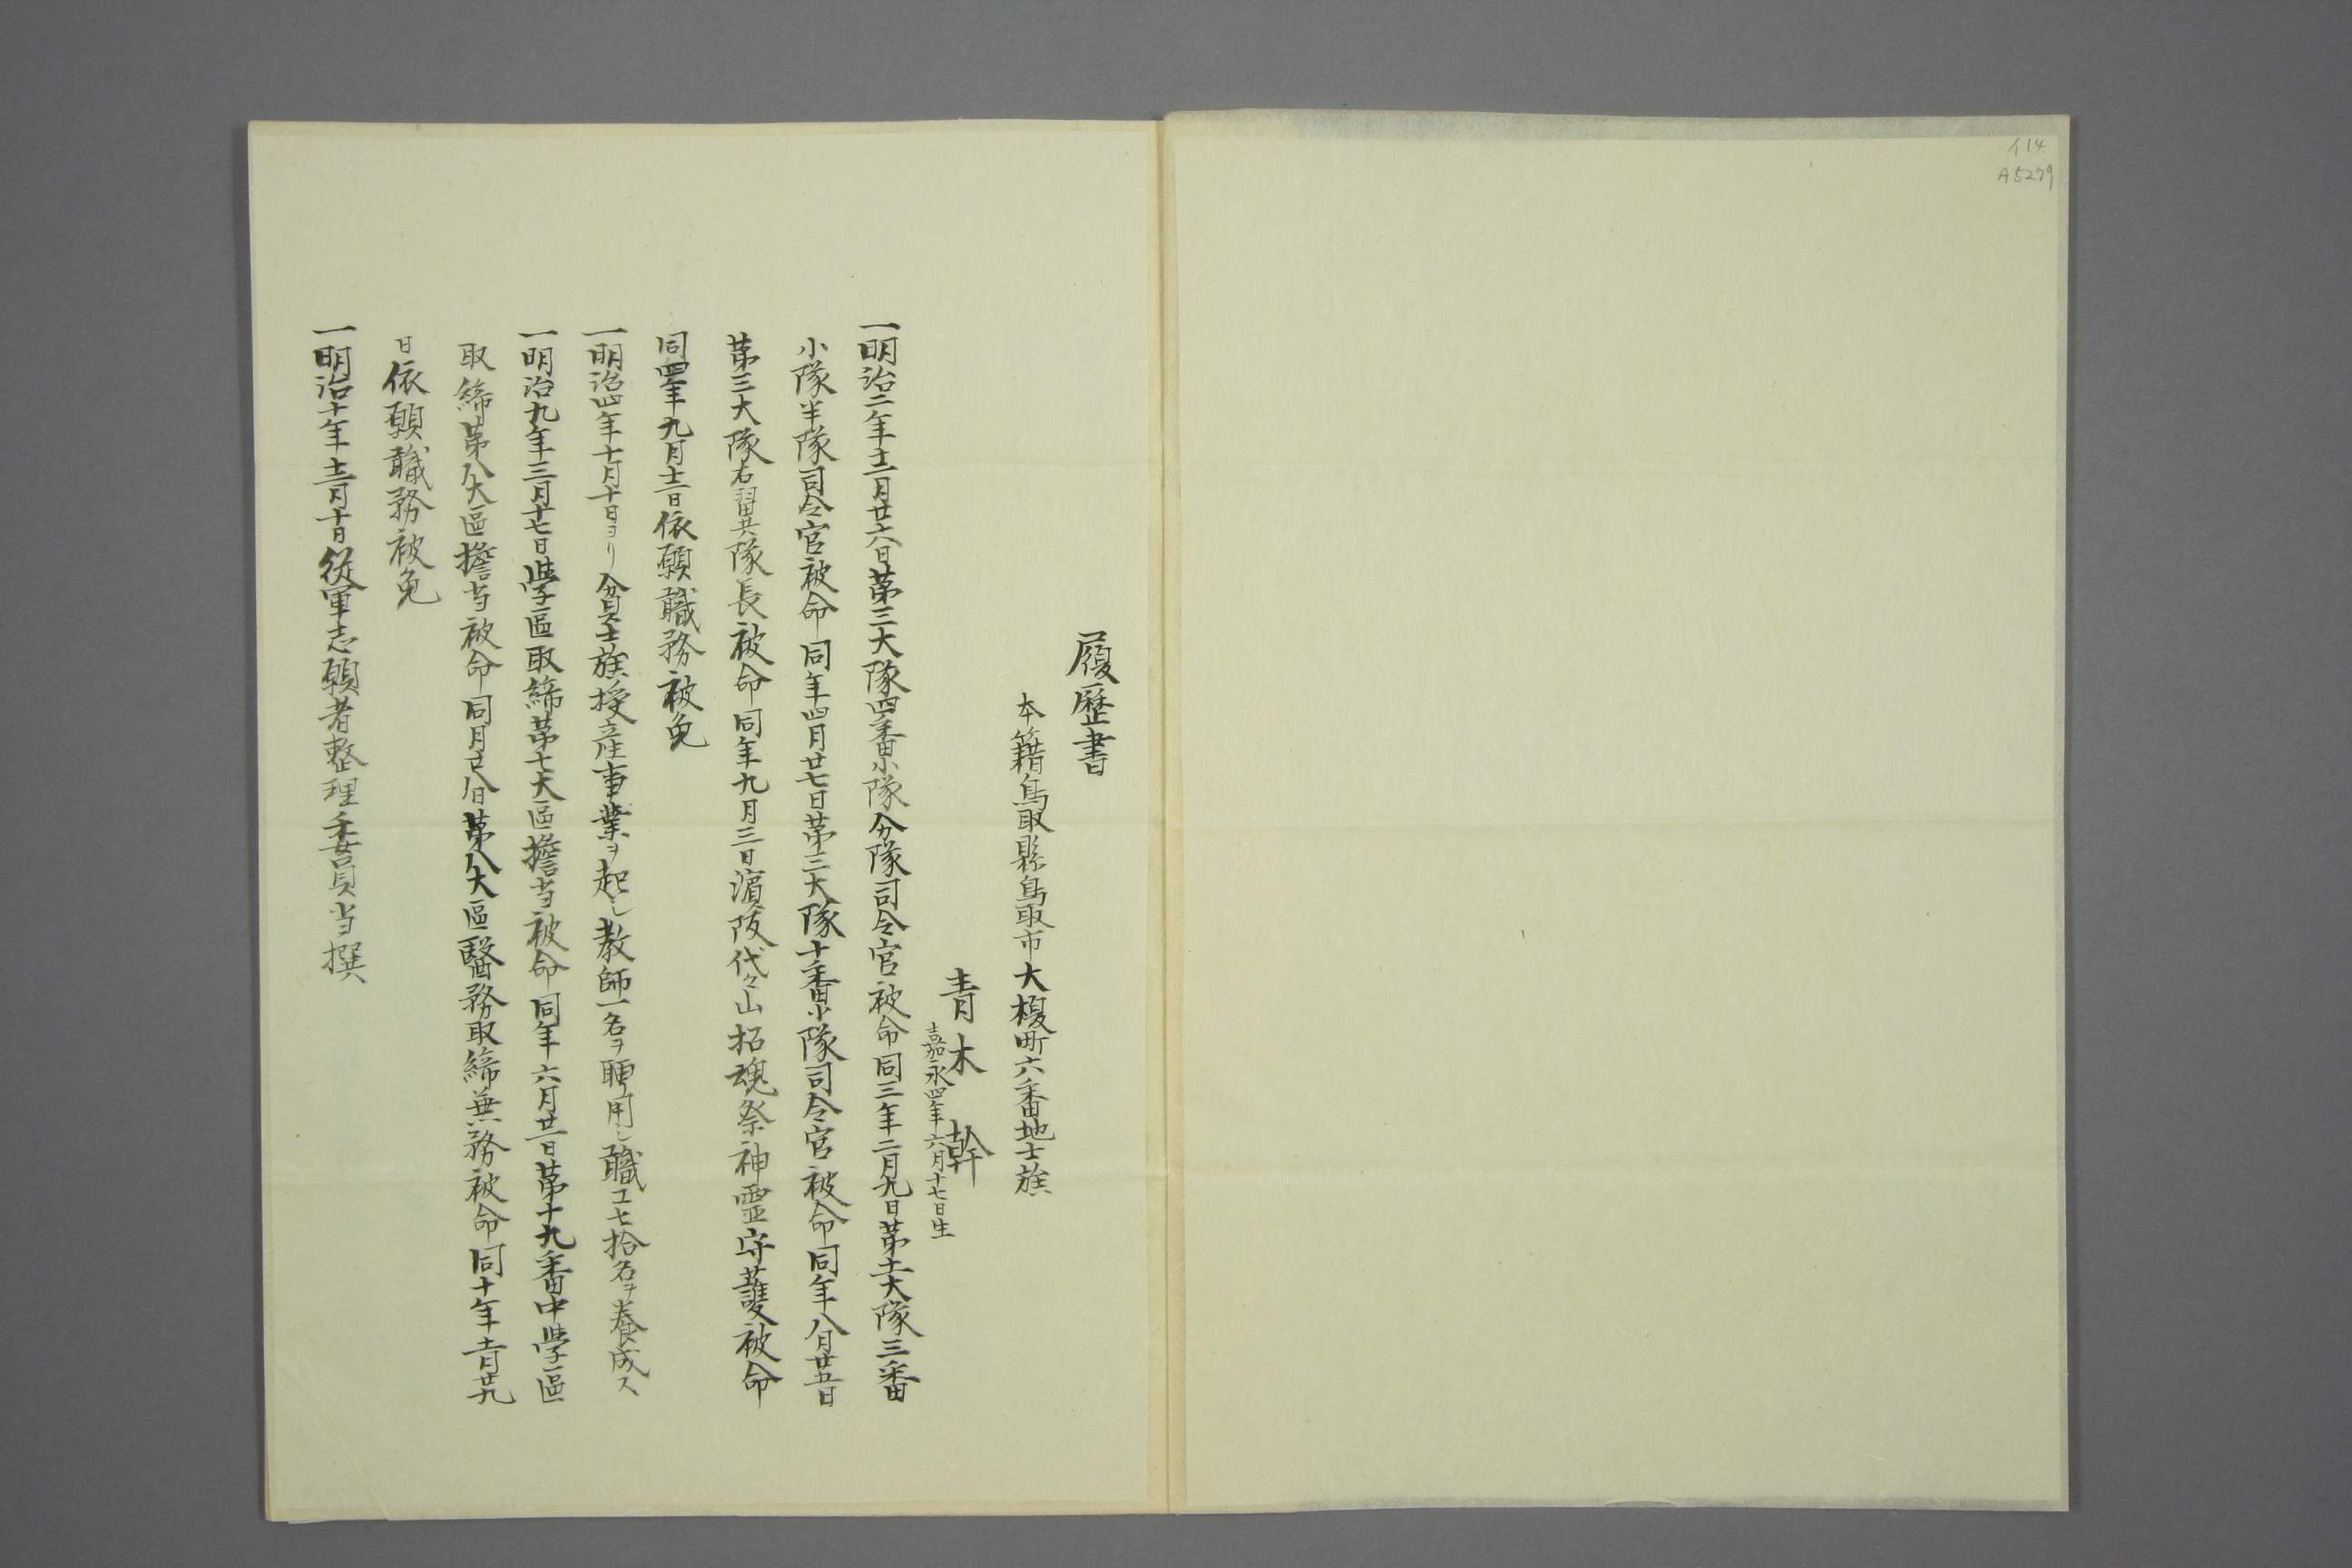 イ14
A5279
履歴書
本籍鳥取縣鳥取市大榎町六番地士族
青木幹
嘉永四年六月十七日生
一明治二年十一月廿六日第三大隊四番小隊分隊司令官被命同三年二月九日第十一大隊三番
小隊半隊司令官被命同年四月廿七日第三大隊十番小隊司令官被命同年八月廿五日
第三大隊右翼兵隊長被命同年九月三日濵阪代々山招魂祭神霊守護被命
同四年九月十二日依願職務被免
一明治四年十月十日ヨリ貧士族授産事業ヲ起シ教師一名ヲ聘用シ職工七拾名ヲ養成ス
一明治九年三月十七日學區取締第七大區擔当被命同年六月廿一日第十九番中學區
取締第八大區擔当被命同月廿八日第八大區醫務取締兼務被命同十年十一月廿九
日依願職務被免
一明治十年十二月十日從軍志願者整理委員当撰